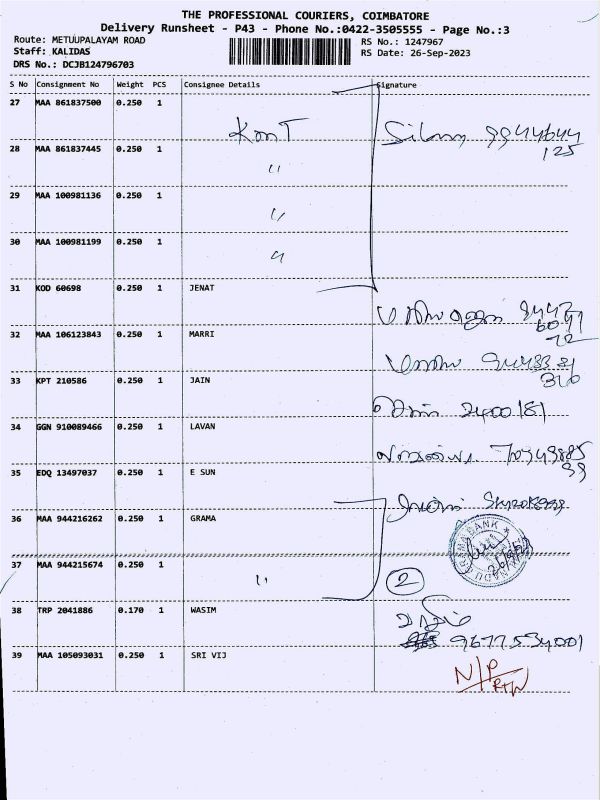 THE PROFESSIONAL COURIERS, COIMBATORE
Delivery Runsheet - P43 - Phone No.:0422-3505555 - Page No.:3
Route: METUUPALAYAM ROAD
Staff: KALIDAS
DRS No.: DCJB124796703
RS No.: 1247967
RS Date: 26-Sep-2023
S No Consignment No Weight PCS Consignee Details Signature
27 MAA 861837500 0.250 1
28 MAA 861837445 0.250 1
"
29 MAA 100981136 0.250 1
"
30 MAA 100981199 0.250 1
"
31 KOD 60698 0.250 1 JENAT
32 MAA 106123843 0.250 1 MARRI
33 KPT 210586 0.250 1 JAIN
2400181
34 GGN 910089466 0.250 1 LAVAN
35 EDQ 13497037 0.250 1 E SUN
36 MAA 944216262 0.250 1 GRAMA
37 MAA 944215674 0.250 1
" 2
38 TRP 2041886 0.170 1 WASIM
9677534001
39 MAA 105093031 0.250 1 SRI VIJ
N/P
RTN